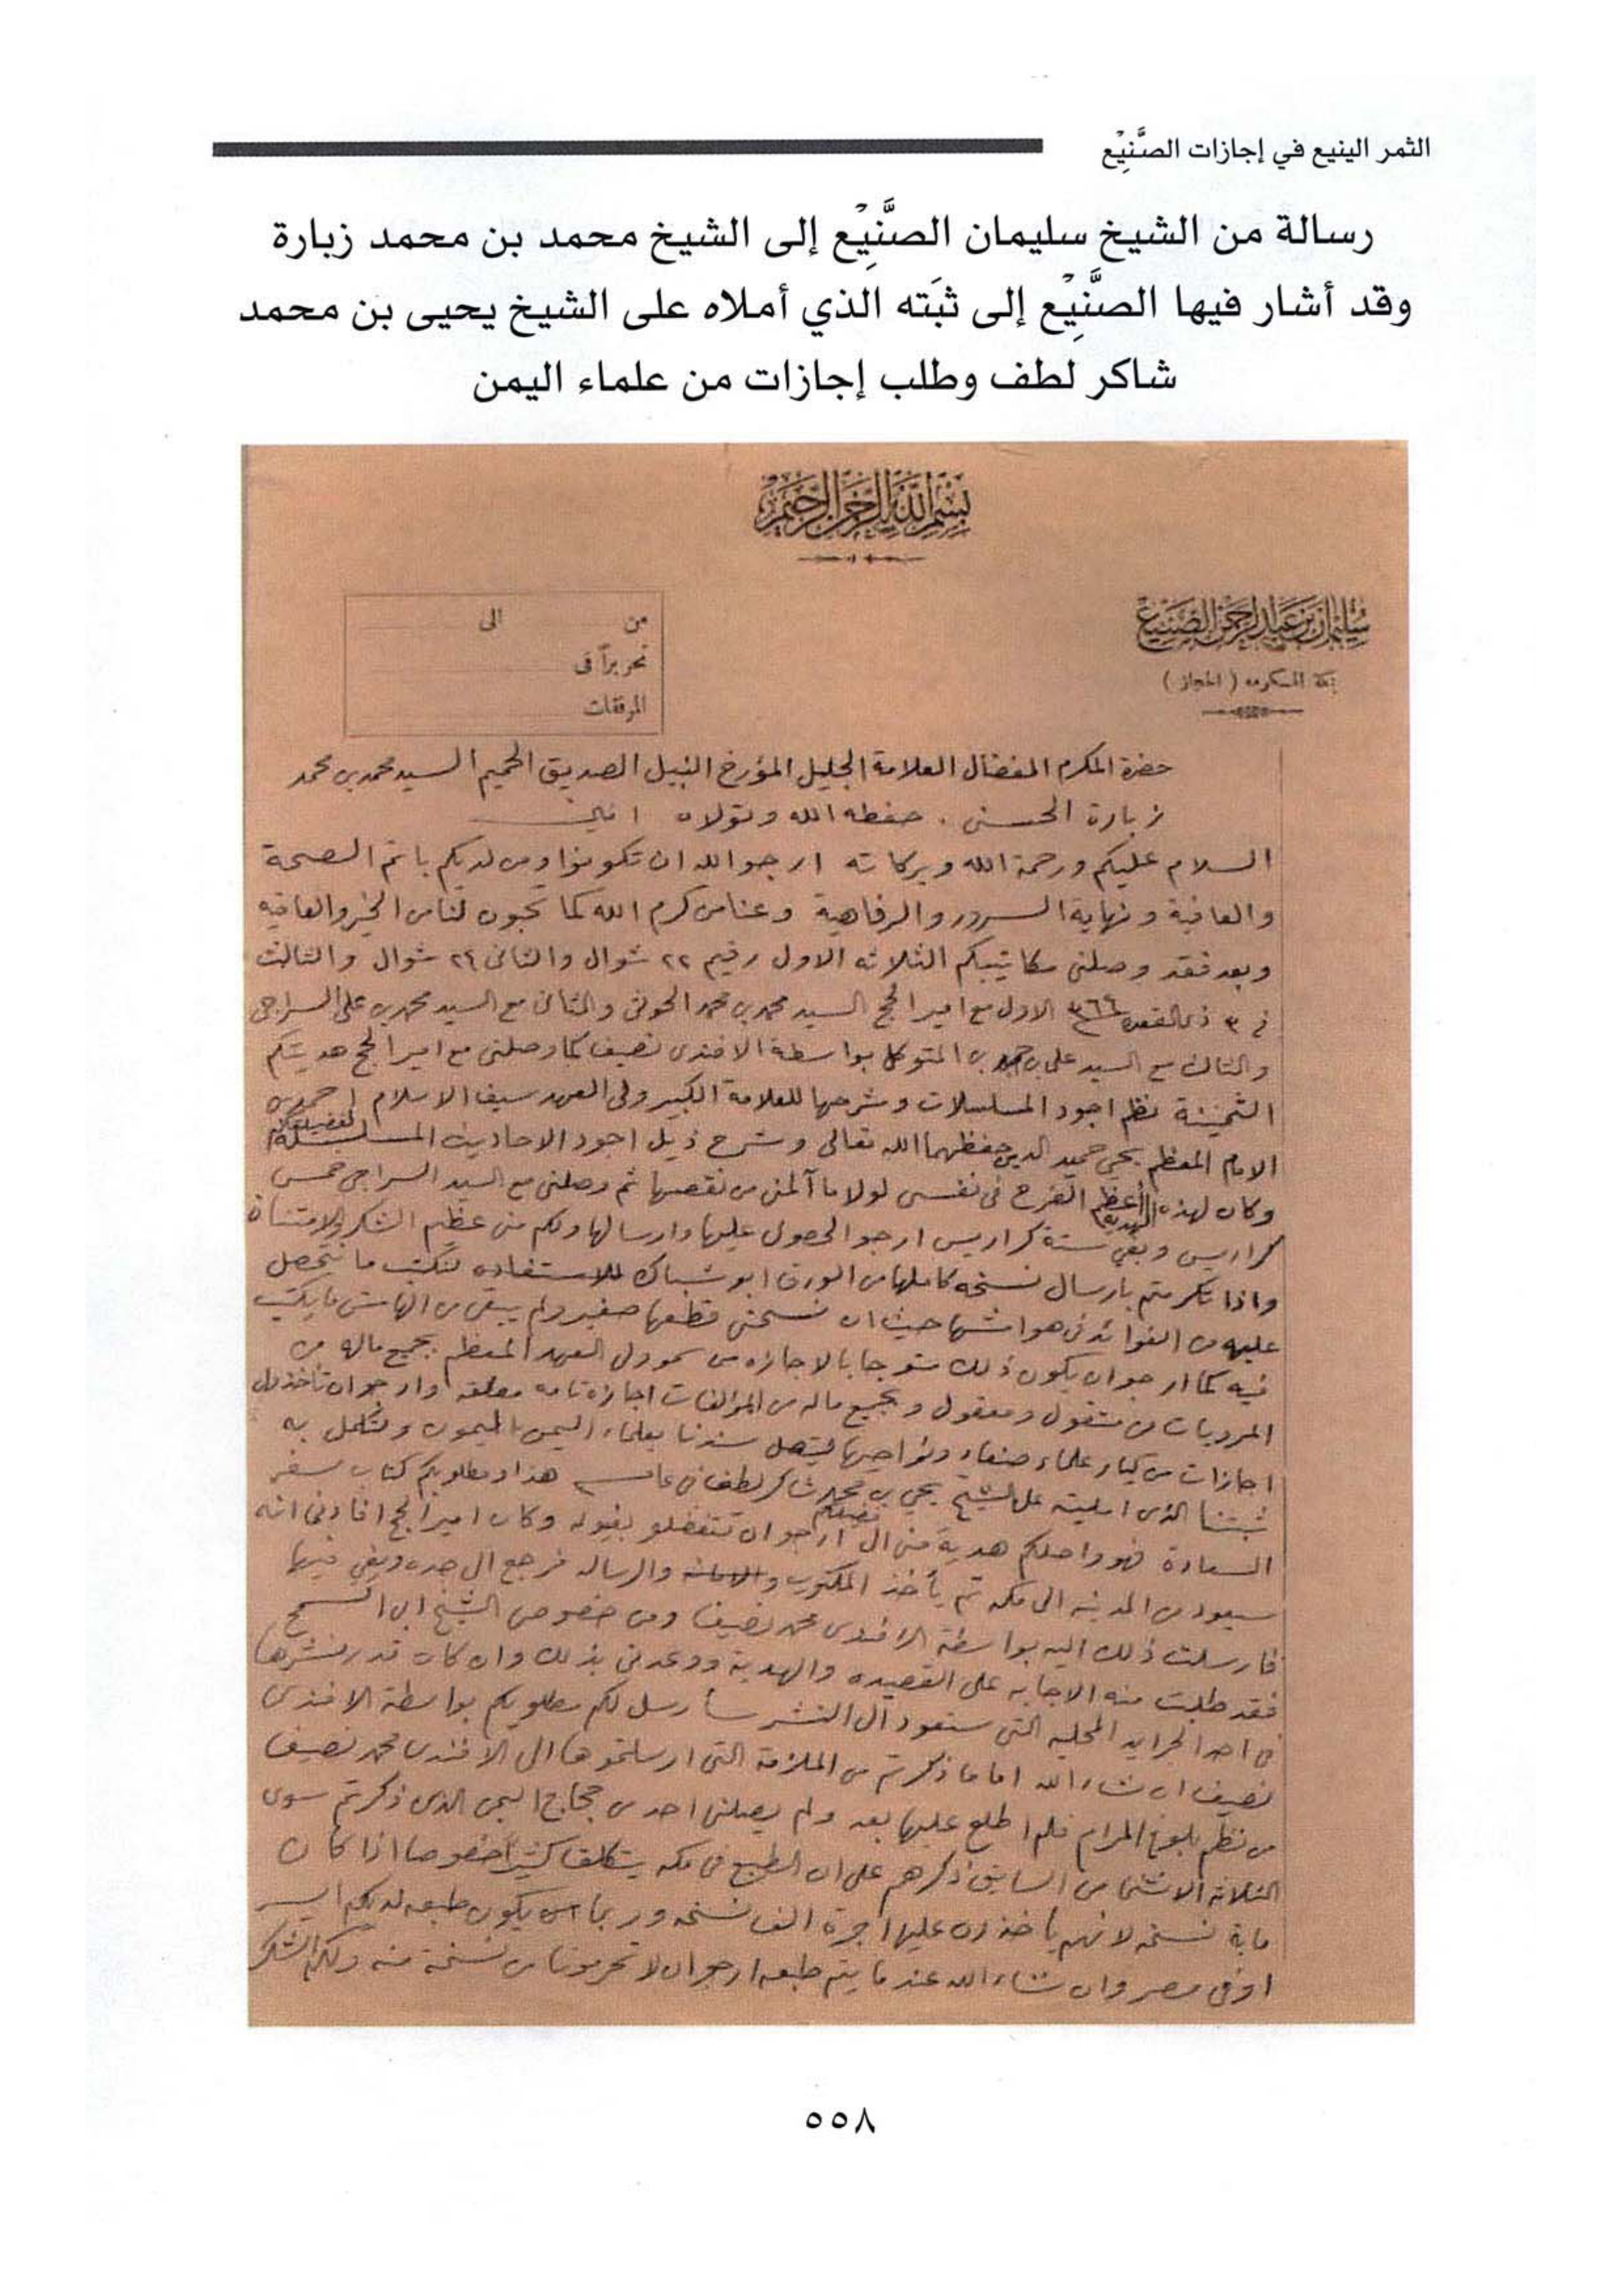 الثمر الينيع في إجازات الصَّنِيْع
رسالة من الشيخ سليمان الصَّنِيْع إلى الشيخ محمد بن محمد زبارة
وقد أشار فيها الصَّنِيْع إلى ثبَته الذي أملاه على الشيخ يحيى بن محمد
شاكر لطف وطلب إجازات من علماء اليمن
بسم الله الرحمن الرحيم
سليمان بن عبد الرحمن الصنيع
بمكة المكرمه ( الحجاز )
من الى
تحريراً فى
المرفقات
حضرة المكرم المفضال العلامة الجليل المؤرخ النبيل الصديق الحميم السيد محمد بن محمد
زبارة الحسنى . حفظه الله وتولاه امين
السلام عليكم ورحمة الله وبركاته ارجو الله ان تكونوا ومن لديكم باتم الصحة
والعافية ونهاية السرور والرفاهية وعنا من كرم الله كما تحبون لنا من الخير والعافيه
وبعد فقد وصلنى مكاتيبكم الثلاثه الاول رقيم ٢٢ شوال والثانى ٢٤ شوال والثالث
فى ٣ ذى القعده الاول مع امير الحج السيد محمد بن محمد الحوثى والثانى مع السيد محمد بن على السراجى
والثالث مع السيد على بن المتوكل بواسطة الافندى نصيف كما وصلنى مع امير الحج هديتكم
الثمينة نظم اجود المسلسلات وشرحها للعلامة الكبير ولى العهد سيف الاسلام احمد بن
الامام المعظم يحيى حميد الدين حفظهما الله تعالى وشرح ذيل اجود الاحاديث المسلسلة لفضيلتكم
وكان لهذه الهدية أعظم الفرح فى نفسى لولا ما آلمنى من نقصها ثم وصلنى مع السيد السراجى خمس
كراريس وبقي ستة كراريس ارجو الحصول عليها وارسالها ولكم منى عظيم الشكر والامتنان
واذا تكرمتم بارسال نسخه كاملها من الورق ابو شباك للاستفاده لنكتب ما نتحصل
عليه من الفوائد فى هوامشها حيث ان نسختى قطعها صغير ولم يبقى من الهامش ما يكتب
فيه كما ارجو ان يكون ذلك متوجا بالاجازه من سمو ولى العهد المعظم بجميع ماله من
المرويات من منقول ومعقول وبجميع ماله من المؤلفات اجازة تامه مطلقه وارجو ان تأخذ لى
اجازات من كبار علماء صنعاء ونواحيها ليتصل سندنا بعلماء اليمن الميمون ونكمل به
ثبتنا الذى امليته على الشيخ يحيى بن محمد شاكر لطف فى هذا ومطلوبكم كتاب سفر
السعادة فهو واصلكم هدية منى الى فضيلتكم ارجو ان تتفضلو بقبوله وكان امير الحج افادنى انه
سيعود من المدينه الى مكه ثم يأخذ المكتوب والرساله فرجع الى جده وبقي فيها
فارسلت ذلك اليه بواسطة الافندى محمد نصيف ومن خصوص الشيخ ابى السمح
فقد طلبت منه الاجابه على القصيده والهدية ووعدنى بذلك وان كان قد نشرها
فى احد الجرايد المحليه التى ستعود الى النشر سأرسل لكم مطلوبكم بواسطة الافندى
نصيف ان شاء الله اما ما ذكرتم من الملازمة التى ارسلتموها الى الافندى محمد نصيف
من نظم بلوغ المرام فلم اطلع عليها بعد ولم يصلنى احد من حجاج اليمن الذى ذكرتم سوى
الثلاثه السابق ذكرهم على ان الطبع فى مكه يتكلف كثيرا خصوصا اذا كان
ماية نسخه لانهم يأخذون عليها اجرة الف نسخه وربما يكون طبعه لديكم ايسر
او فى مصر وان شاء الله عندما يتم طبعه ارجو ان لا تحرمونا من نسخة منه ولكم الشكر
٥٥٨